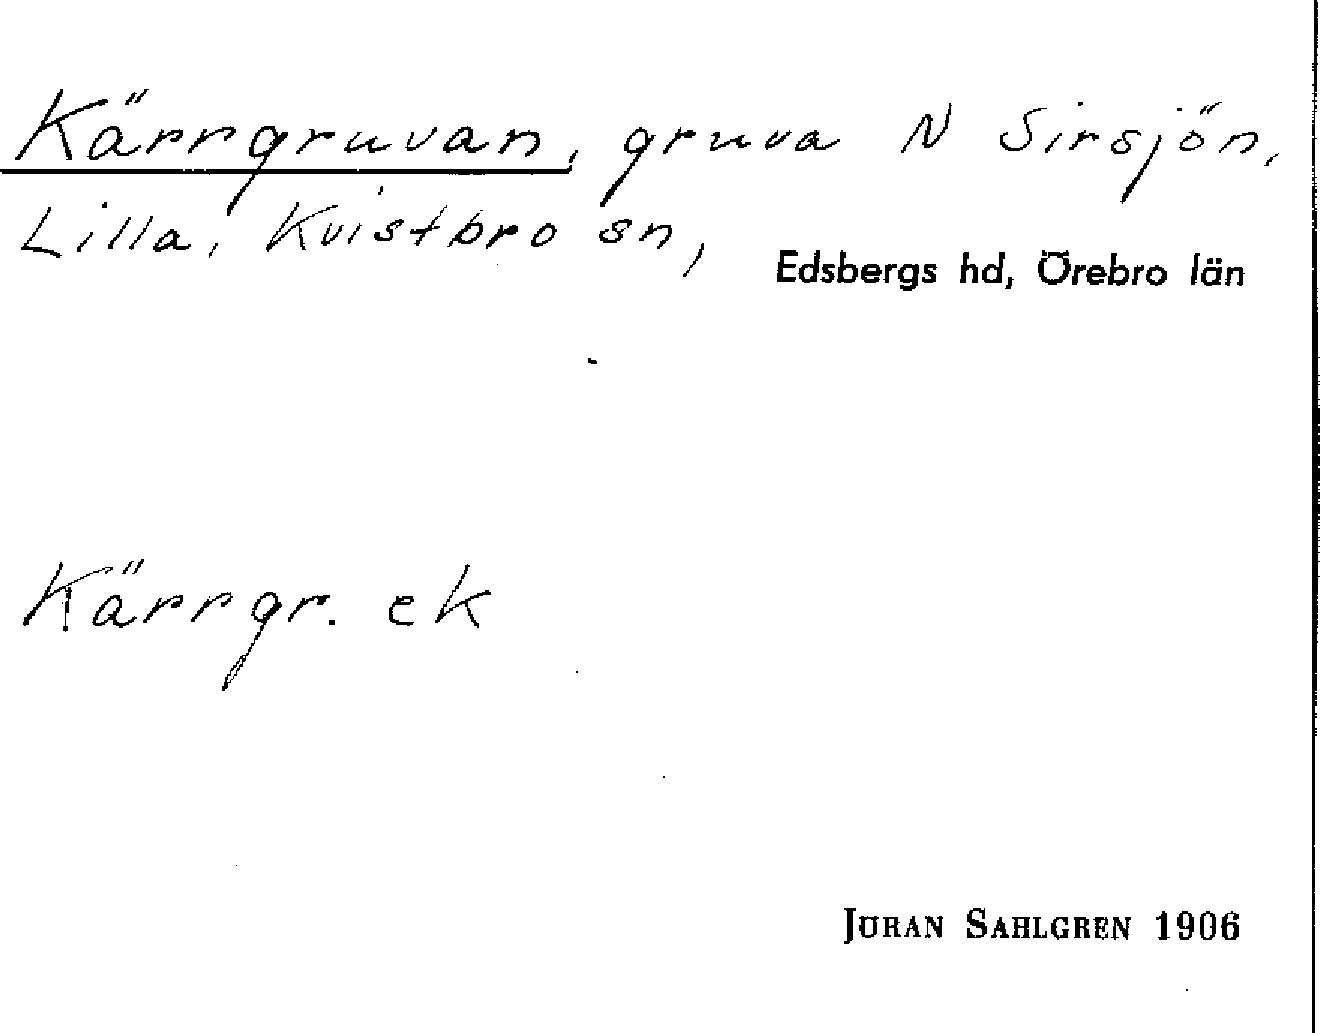 Kärrgruvan, gruva N Sirsjön,
Lilla, Kvistbro sn, Edsbergs hd, Örebro län
Kärrgr. ek
JÖRAN SAHLGREN 1906